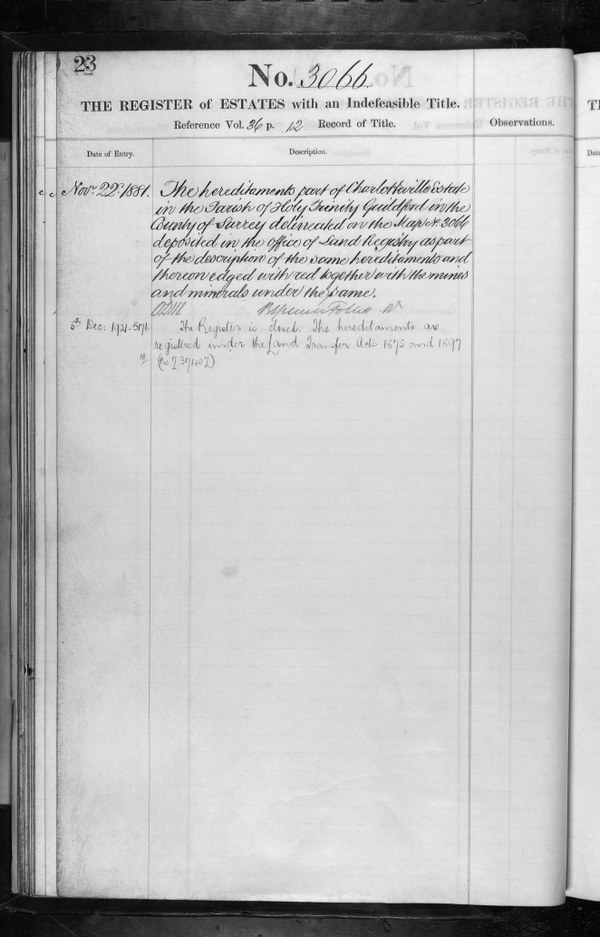 23
No. 3066
THE REGISTER of ESTATES with an Indefeasible Title.
Reference Vol. 36 p. 12 Record of Title.
Observations.
Date of Entry.
Description.
Novr. 22d. 1881.
The hereditaments part of Charlotteville Estate
in the Parish of Holy Trinity Guildford in the
County of Surrey delineated on the Map No. 3066
deposited in the Office of Land Registry as part
of the description of the same hereditaments and
thereon edged with red together with the mines
and minerals under the same.
5th Dec: 1921
The Register is closed. The hereditaments are
registered under the Land Transfer Acts 1875 and 1897